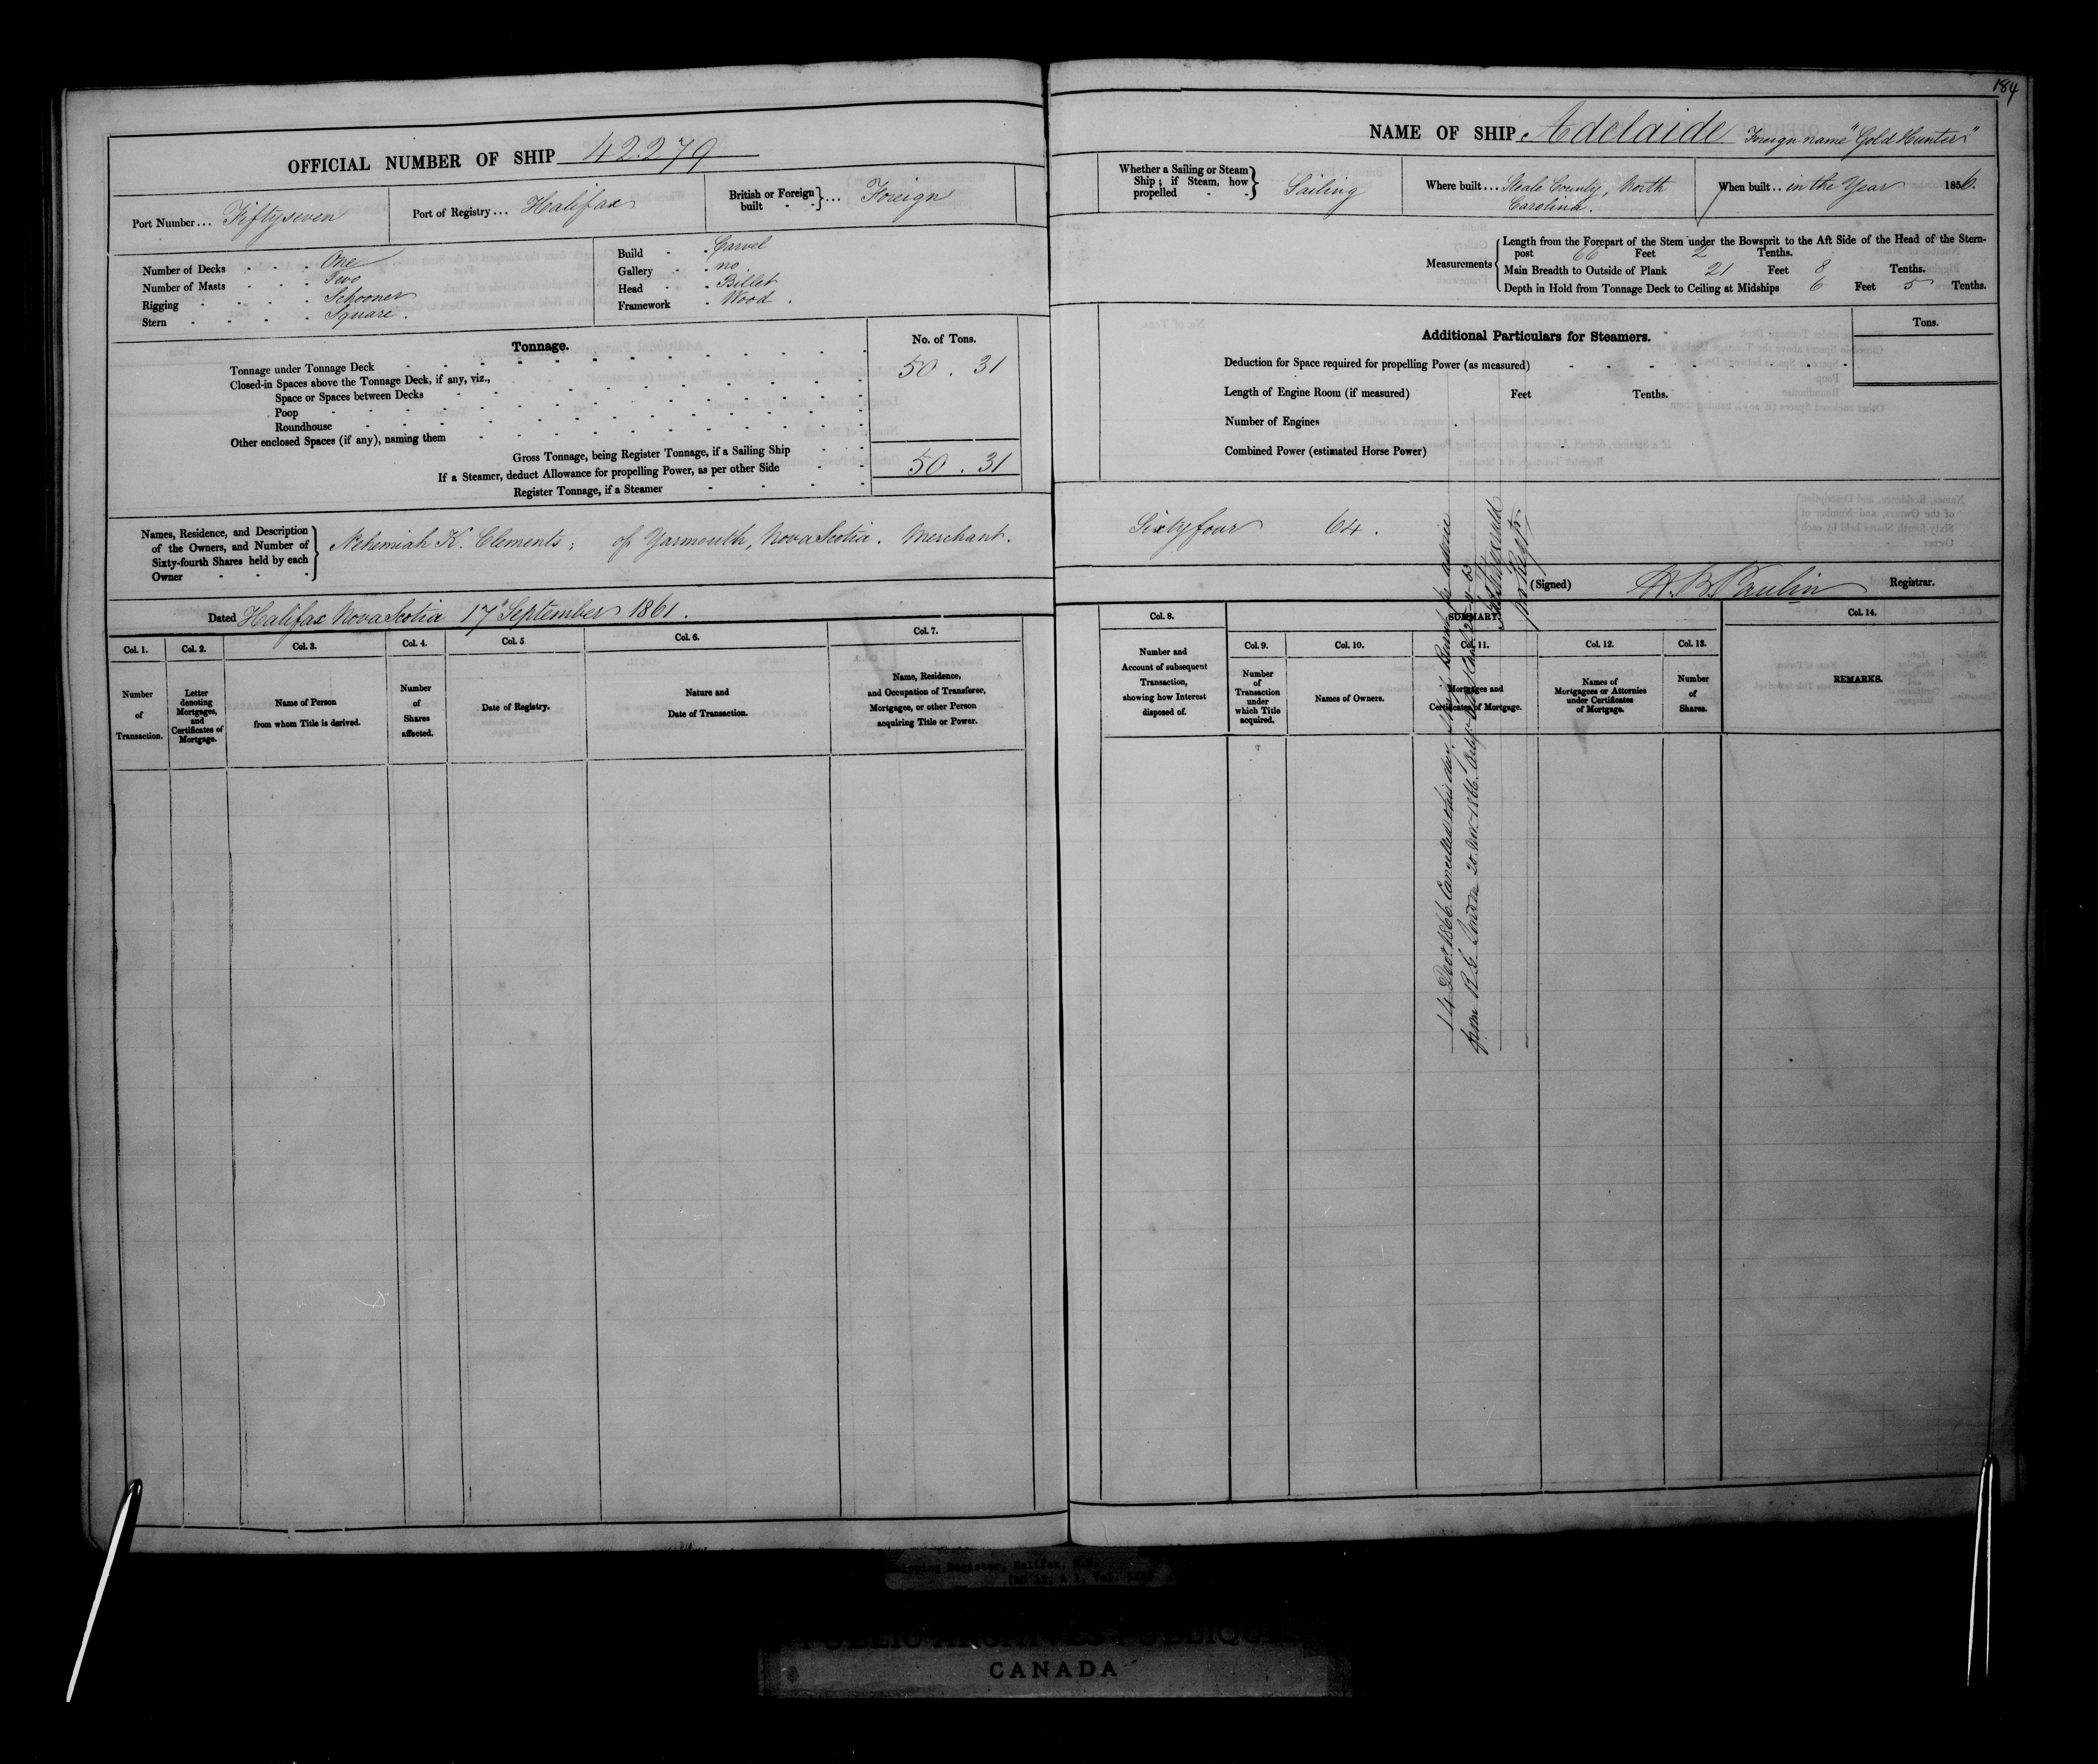 184
OFFICIAL NUMBER OF SHIP 42.279
Port Number... Fiftyseven
Port of Registry... Halifax
British or Foreign built - - } ... Foreign
Number of Decks - - - One
Number of Masts - - - Two
Rigging - - - - Schooner
Stern - - - - Square.
Build - - Carvel
Gallery - - no.
Head - - Billet
Framework - Wood.
Tonnage.
No. of Tons.
Tonnage under Tonnage Deck 50.31
Closed-in Spaces above the Tonnage Deck, if any, viz.,
Space or Spaces between Decks
Poop
Roundhouse
Other enclosed Spaces (if any), naming them
Gross Tonnage, being Register Tonnage, if a Sailing Ship 50.31
If a Steamer, deduct Allowance for propelling Power, as per other Side
Register Tonnage, if a Steamer
Names, Residence, and Description
of the Owners, and Number of
Sixty-fourth Shares held by each
Owner - - -
Nehemiah K. Clements; of Yarmouth, Nova Scotia. Merchant.
Dated Halifax Nova Scotia 17" September 1861.
Col. 1.
Number
of
Transaction.
Col. 2.
Letter
denoting
Mortgages,
and
Certificates of
Mortgage.
Col. 3.
Name of Person
from whom Title is derived.
Col. 4.
Number
of
Shares
affected.
Col. 5
Date of Registry.
Col. 6.
Nature and
Date of Transaction.
Col. 7.
Name, Residence,
and Occupation of Transferee,
Mortgagee, or other Person
acquiring Title or Power.
NAME OF SHIP Adelaide Foreign name "Gold Hunter"
Whether a Sailing or Steam
Ship; if Steam, how
propelled - - } Sailing
Where built... Steale County, North
Carolina.
When built.. in the Year 1856.
Measurements
Length from the Forepart of the Stem under the Bowsprit to the Aft Side of the Head of the Stern-
post 66 Feet 2 Tenths.
Main Breadth to Outside of Plank 21 Feet 8 Tenths.
Depth in Hold from Tonnage Deck to Ceiling at Midships 6 Feet 5 Tenths.
Additional Particulars for Steamers.
Tons.
Deduction for Space required for propelling Power (as measured)
Length of Engine Room (if measured) Feet Tenths.
Number of Engines
Combined Power (estimated Horse Power)
Sixtyfour 64.
(Signed) H. B. Paulin Registrar.
Col. 8.
Number and
Account of subsequent
Transaction,
showing how Interest
disposed of.
SUMMARY.
Col. 9.
Number
of
Transaction
under
which Title
acquired.
Col. 10.
Names of Owners.
Col. 11.
Mortgages and
Certificates of Mortgage.
Col. 12.
Names of
Mortgagees or Attornies
under Certificates
of Mortgage.
Col. 13.
Number
of
Shares.
Col. 14.
REMARKS.
14 Decr 1866. Cancelled this day, Ship Burnt, pr advice
from R. G. London 20 Nov 1866.
Shipping Register, Halifax, N.S.
PUBLIC ARCHIVES PUBLIQUES
CANADA